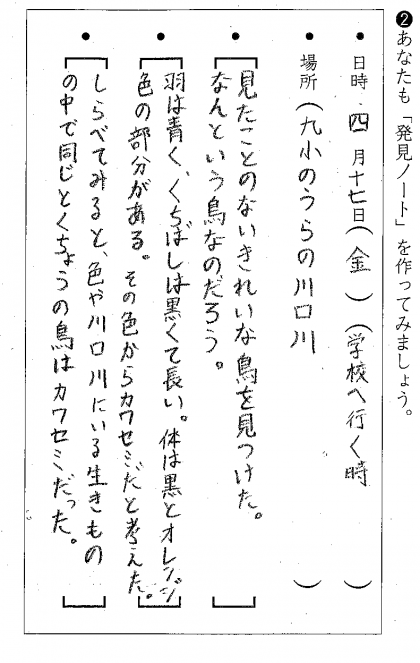 ❷あなたも「発見ノート」を作ってみましょう。
• 日時・四月十七日(金)(学校へ行く時)
• 場所(九小のうらの川口川)
• 見たことのないきれいな鳥を見つけた。
なんという鳥なのだろう。
• 羽は青く、くちばしは黒くて長い。体は黒とオレンジ
色の部分がある。その色からカワセミだと考えた。
• しらべてみると、色や川口川にいる生きもの
の中で同じとくちょうの鳥はカワセミだった。